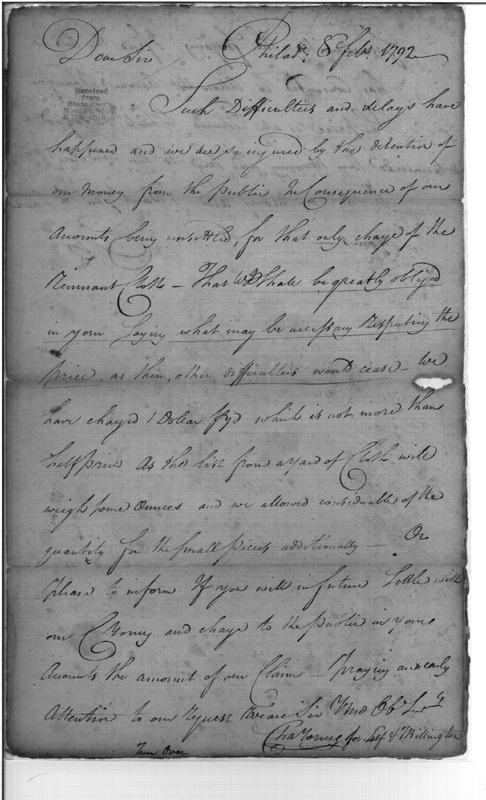 Dear Sir Philada. 8 feby. 1792
Received
from
State Dept.
Such Difficulties and delays have
happened and we are so injured by the detention of
our Money from the public In Consequence of our
Accounts being unsettled, for that only charge of the
Remnant Cloth — That We Shall be greatly obliged
in your Saying what may be necessary Respecting the
price, as then, other difficulties would cease — We
have charged 1 Dollar pyd which is not more than
half price As the list from a yard of Cloth will
weigh some Ounces and we allowed considerable of the
quantity for the small pieces additionally — Or
please to inform If you will in future Settle with
our Money and charge to the public in your
Accounts the amount of our Claim — praying an early
Attention to our request We are Sir Your Obt Servts
Chas Young for Self & Millington
Turn Over